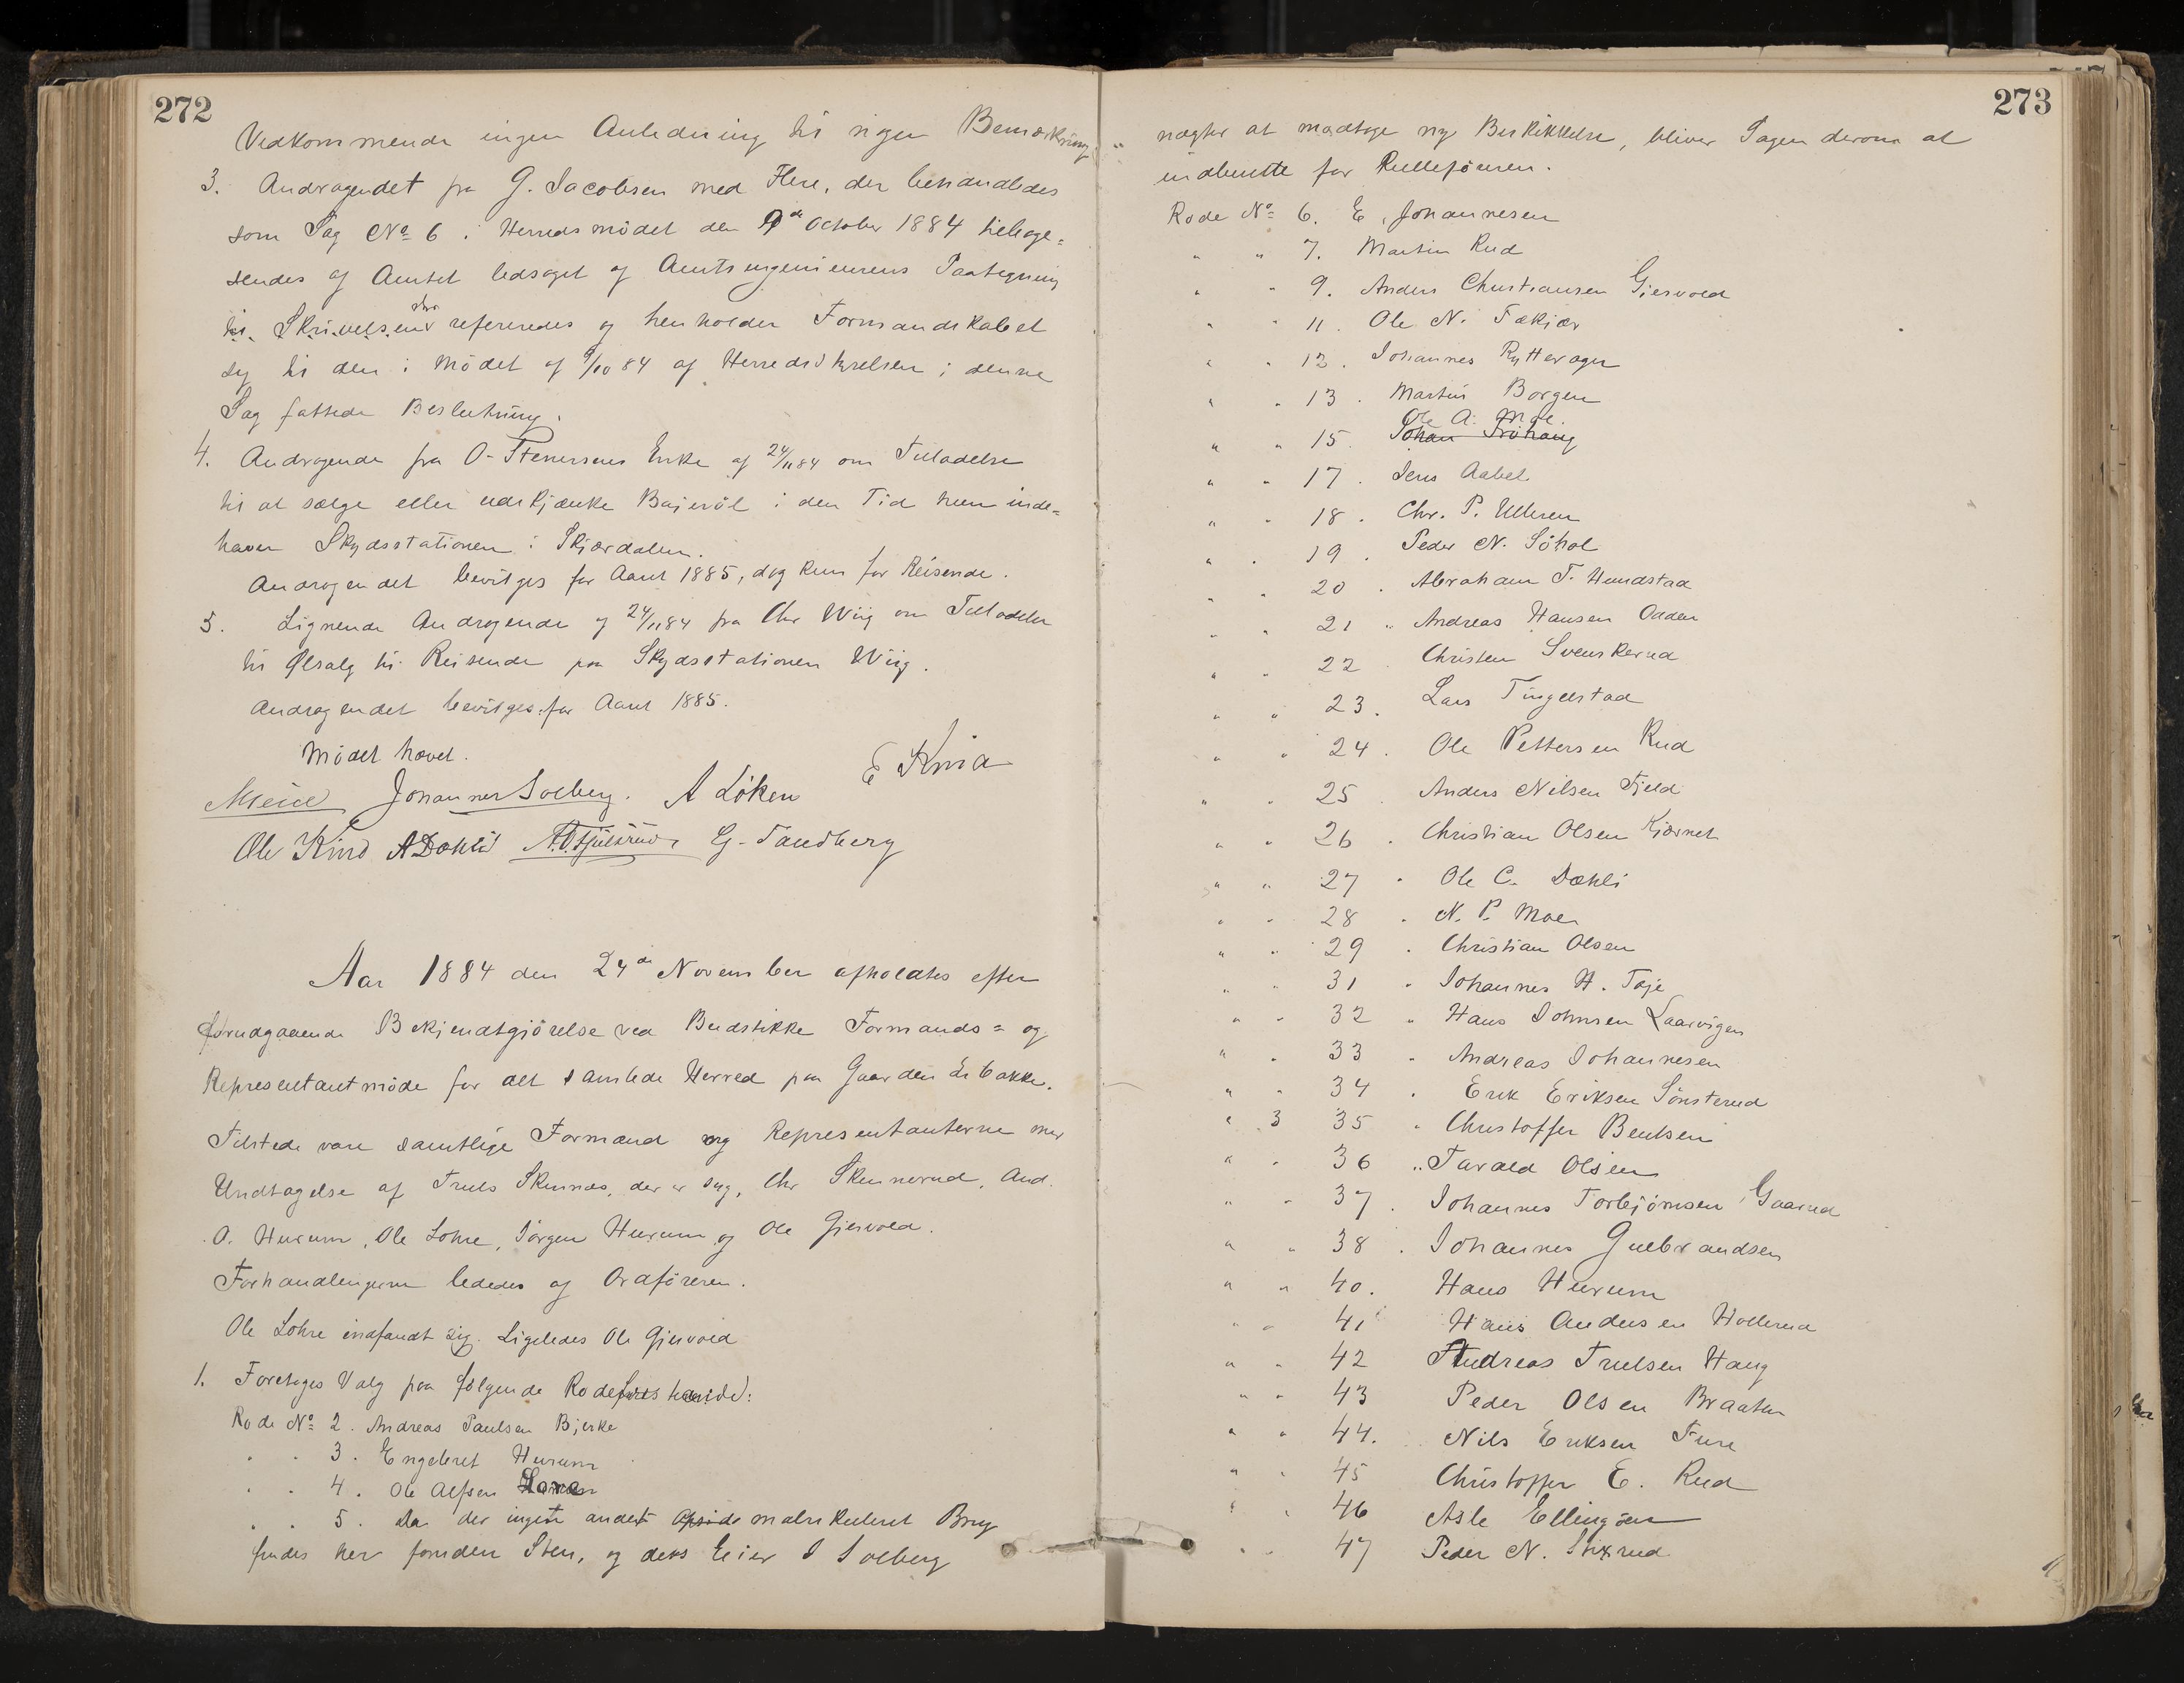 272
Vedkommende ingen Anledning til nogen Bemærkning
3. Andragendet fra G. Jacobsen med Flere, der behandledes
som Sag No 6 i Herredsmödet den 9de October 1884 tilbage=
sendes af Amtet ledsaget af Amtsingenieurens Paategning
Skrivelsen refereredes og henholder Formandskabet
sig til den i Mödet af 9/10 84 af Herredsstyrelsen i denne
Sag fattede Beslutning.
4. Andragende fra O. Stenersens Enke af 24/11 84 om Tilladelse
til at sælge eller udskjænke Bajeröl i den Tid hun inde=
haver Skydsstationen i Skjærdalen.
Andragendet bevilges for Aaret 1885, dog kun for Reisende.
5. Lignende Andragende af 24/11 84 fra Chr Wiig om Tilladelse
til Ølsalg til Reisende paa Skydsstationen Wiig.
Andragendet bevilges for Aaret 1885.
Mödet hævet.
Johannes Solberg. A Löken E Kniv
Ole Kind A Dæhli G. Sandberg
Aar 1884 den 24de November afholdtes efter
forudgaaende Bekjendtgjörelse ved Budstikke Formands= og
Representantmöde for det samlede Herred paa Gaarden Libakke.
Tilstede vare samtlige Formænd og Representanterne med
Undtagelse af Truls Skinnæs, der er syg, Chr Skinnerud, And.
O. Hurum, Ole Lohre, Jörgen Hurum og Ole Gjesvold.
Forhandlingerne lededes af Ordföreren.
Ole Lohre indfandt sig. Ligeledes Ole Gjesvold
1. Foretoges Valg paa fölgende Rodeforstandere:
Rode No 2. Andreas Paulsen Bjerke
" " 3. Engebret Hurum
" " 4. Ole Alfsen
" " 5. Da der intet andet matrikuleret Brug
findes her foruden Sten, og dets Eier J Solberg
273
nægter at modtage ny Beskikkelse, bliver Sagen derom at
indberette for Rulleföreren.
Rode No 6. E. Johannesen
" " 7. Martin Rud
" " 9. Anders Christiansen Gjesvold
" " 11. Ole N. Fækjær
" " 12. Johannes Rytterager
" " 13. Martin Borgen
Ole A. Moe.
" " 15. Johan Fröhaug
" " 17. Jens Aabel
" " 18. Chr. P. Ulleren
" " 19. Peder N. Söhol
" " 20. Abraham T. Hundstad
" " 21 " Andreas Hansen Odden
" " 22. Christen Svenskerud
" " 23. Lars Tingelstad
" " 24. Ole Pettersen Rud
" " 25. Anders Nilsen Fjeld
" " 26. Christian Olsen Kjærnet
" " 27. Ole C. Dæhli
" " 28. N. P. Moen
" " 29. Christian Olsen
" " 31 " Johannes H. Taje
" " 32 " Hans Johnsen Laarvigen
" " 33 " Andreas Johannesen
" " 34. Erik Eriksen Sönsterud
" 3 35 " Christoffer Bentsen
" " 36 " Tarald Olsen
" " 37. Johannes Torbjörnsen Gaarud
" " 38. Johannes Gulbrandsen
" " 40. Hans Hurum
" " 41 Hans Andersen Hollerud
" " 42 Andreas Trulsen Haug
" " 43 Peder Olsen Braaten
" " 44. Nils Eriksen Fure
" " 45 Christoffer E. Rud
" " 46 Asle Ellingsen
" " 47 Peder N. Stixrud